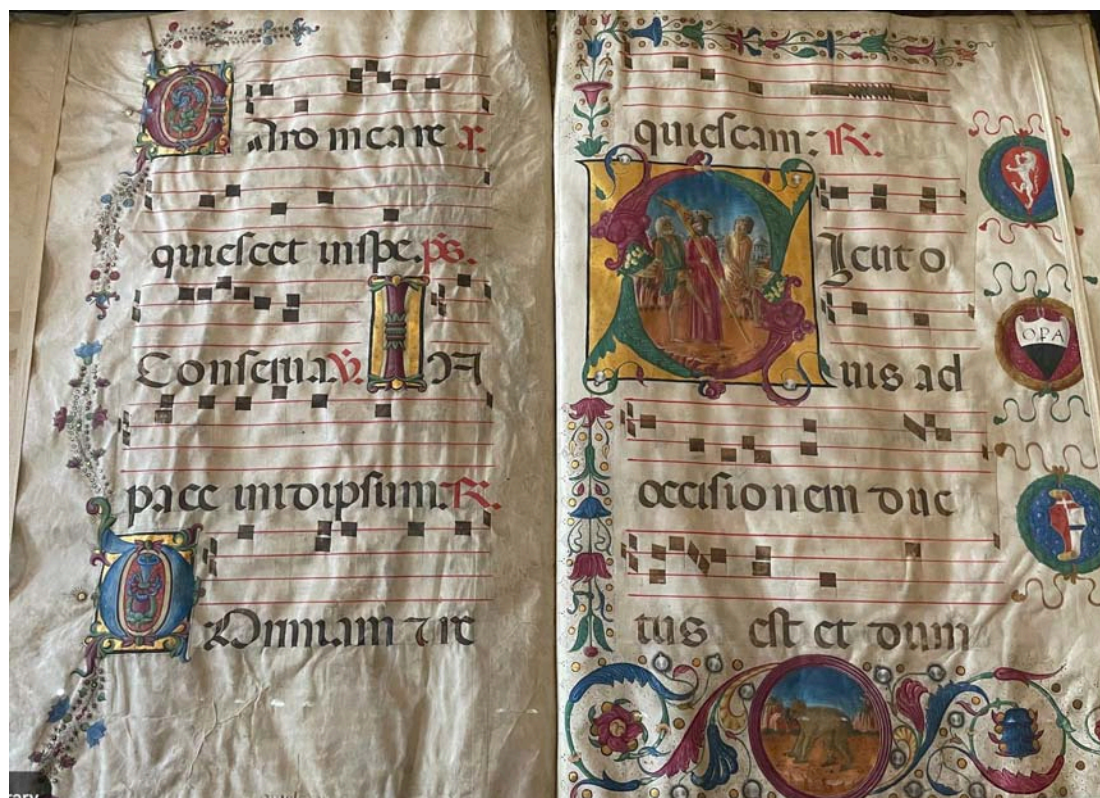 CAro mea re x.
quiescet in spe. ps.
Conserua. V. IN
pace in idipsum: R.
DOrmiam ⁊ re
quiescam: R.
SIcut o
uis ad
occisionem duc
tus est et dum
OPA